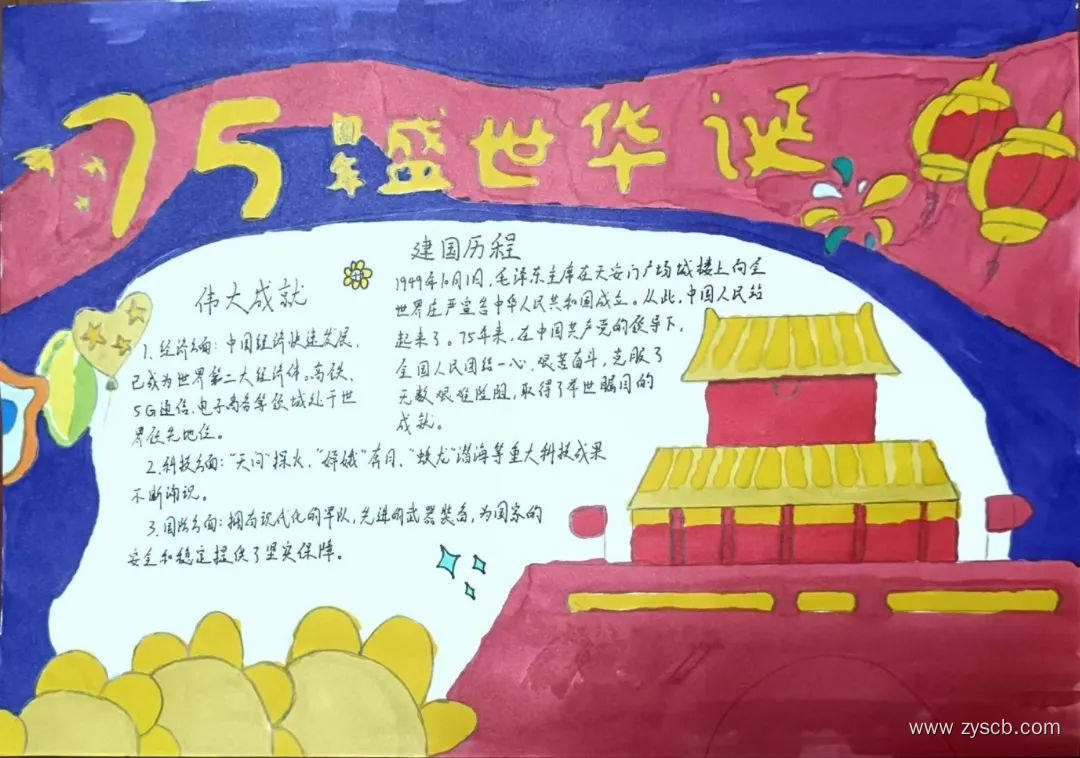 75周年盛世华诞
建国历程
1949年10月1日,毛泽东主席在天安门广场城楼上向全
世界庄严宣告中华人民共和国成立。从此,中国人民站
起来了。75年来,在中国共产党的领导下,
全国人民团结一心,艰苦奋斗,克服了
无数艰难险阻,取得了举世瞩目的
成就。
伟大成就
1、经济方面:中国经济快速发展,
已成为世界第二大经济体。高铁、
5G通信、电子商务等领域处于世
界领先地位。
2.科技方面:"天问"探火,"嫦娥"奔月、"蛟龙"潜海等重大科技成果
不断涌现。
3.国防方面:拥有现代化的军队,先进的武器装备,为国家的
安全和稳定提供了坚实保障。
www.zyscb.com